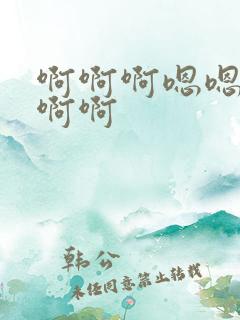 啊啊啊嗯嗯
啊啊
韩公
未经同意禁止转载